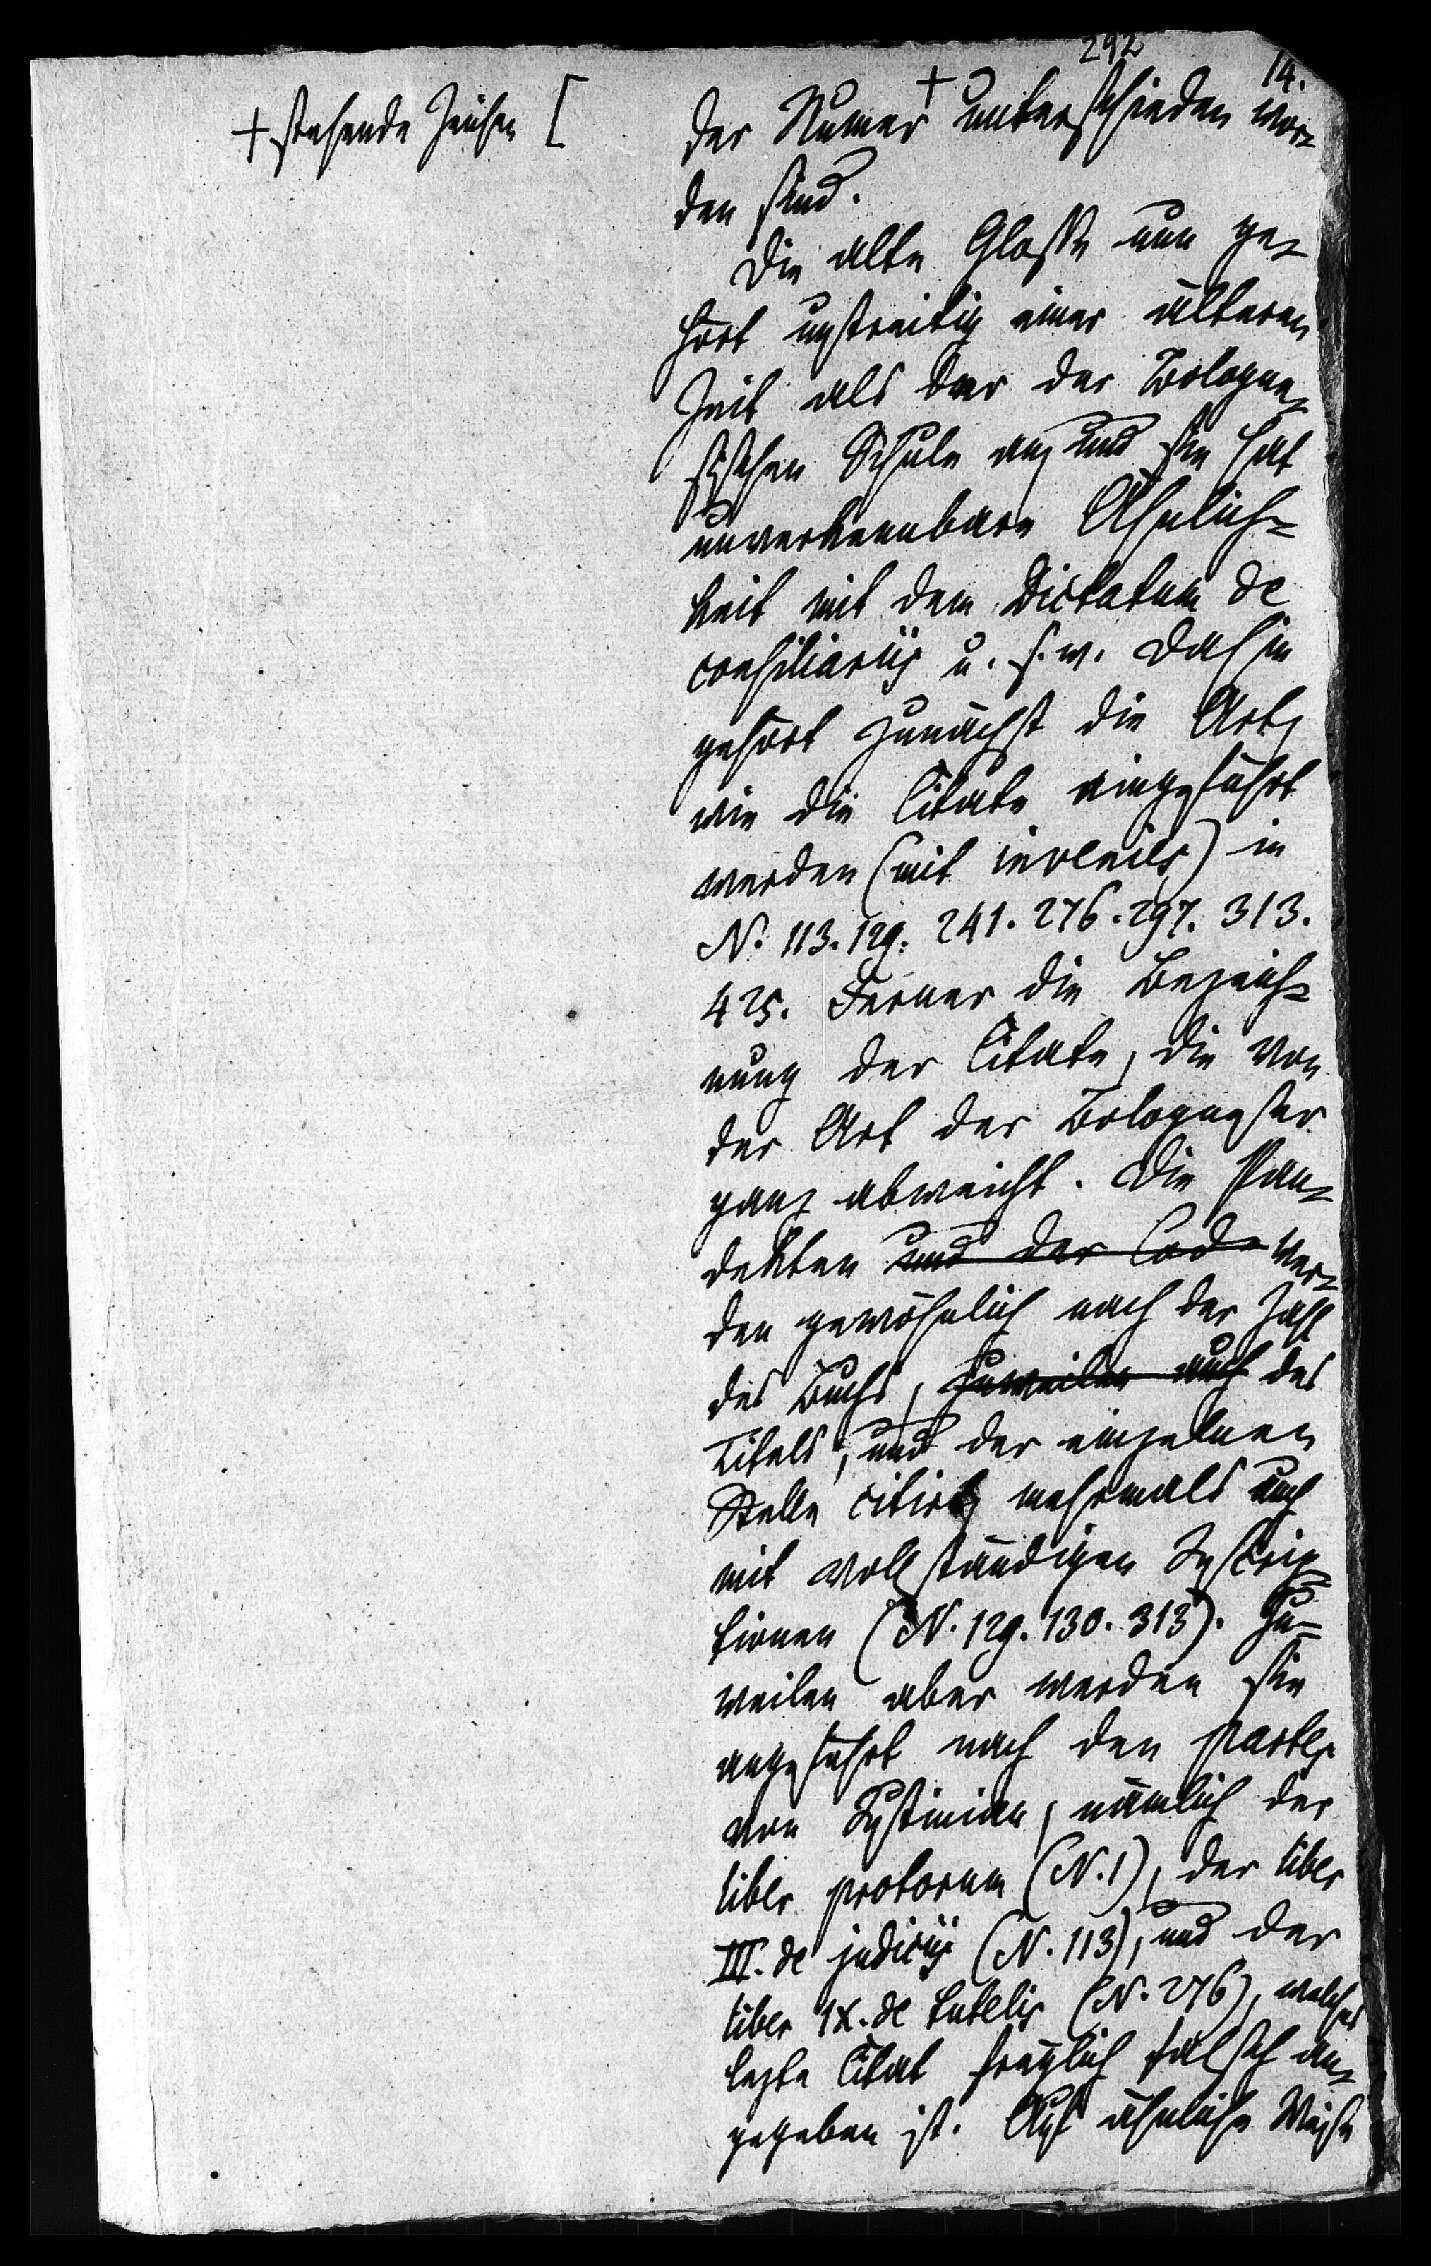 292
14.
+ stehende Zeichen [
der Numer + unterschieden wor-
den sind.
Die alte Glosse nun ge-
hört unstreitig einer älteren
Zeit als der der Bologne-
sischen Schule an, und sie hat
unverkennbare Ähnlich-
keit mit dem Dictatum de
consiliariis u. s. w. Dahin
gehört zunächst die Art,
wie die Citate eingeführt
werden (mit invenies) in
N. 113. 129. 241. 276. 297. 313.
425. Ferner die Bezeich-
nung der Citate, die von
der Art der Bologneser
ganz abweicht. Die Pan-
dekten und der Code wer-
den gewöhnlich nach der Zahl
des Buchs, zuweilen auch des
Titels, und der einzelnen
Stelle citirt, mehrmals auch
mit vollständigen Inscrip-
tionen (N. 129. 130. 313). Zu-
weilen aber werden sie
angeführt nach den partes
von Justinian, nämlich der
liber protorum (N. 1), der liber
III. de judiciis (N. 113), und der
liber IX. de tutelis (N. 276), welches
lezte Citat freylich falsch an-
gegeben ist. Auf ähnliche Weise